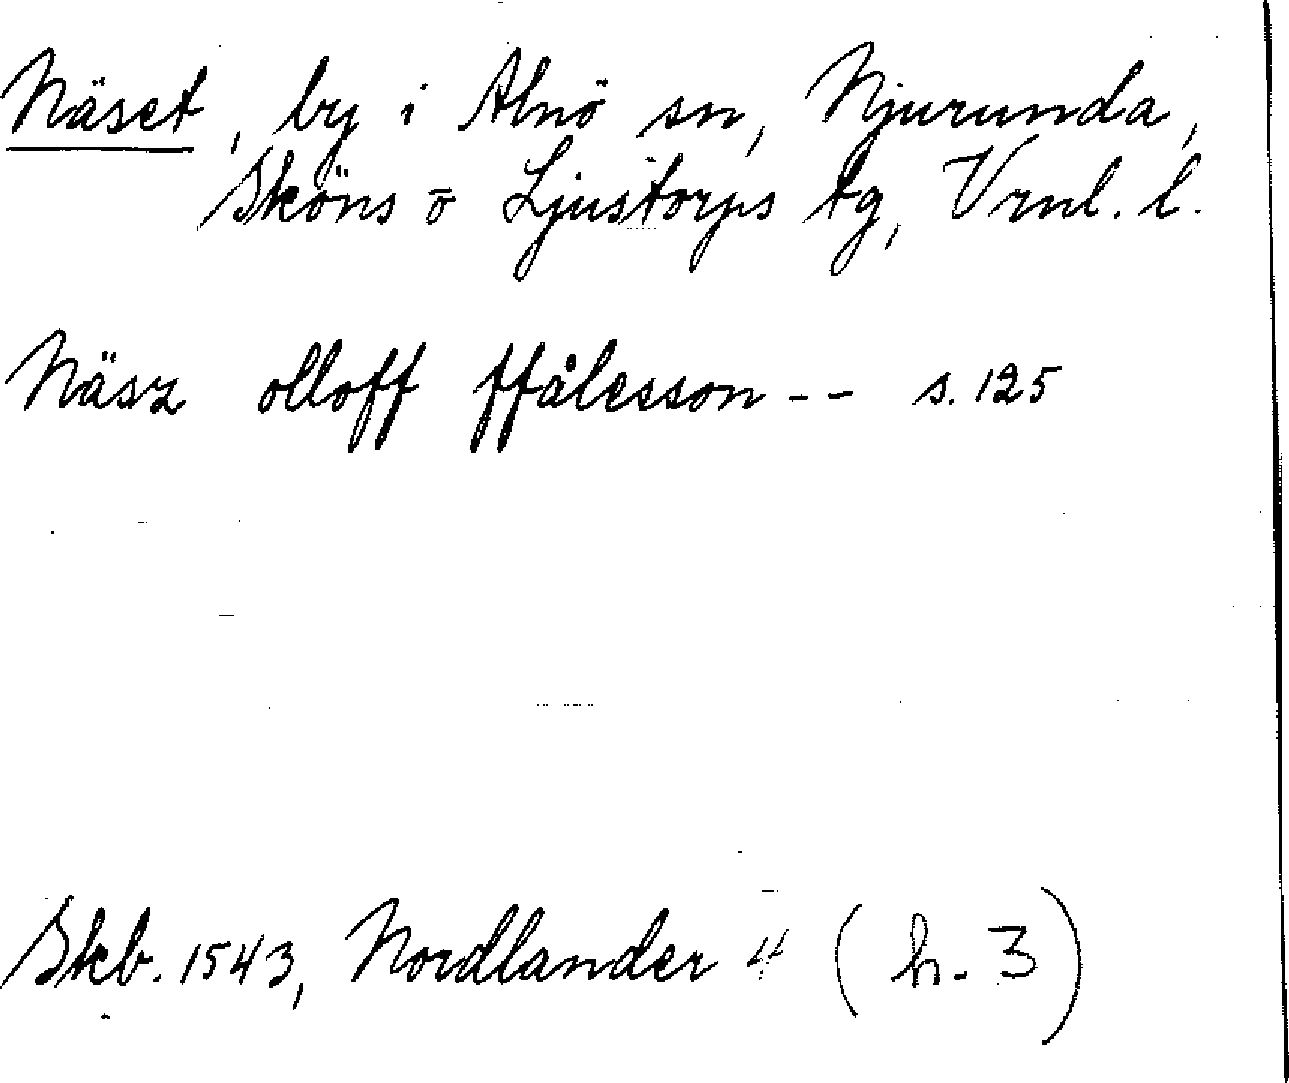 Näset, by i Alnö sn, Njurunda,
Sköns o Ljustorps tg, Vrnl. l.
Näsz olloff ffålesson -- s. 125
Skb. 1543, Nordlander 4 (h. 3)